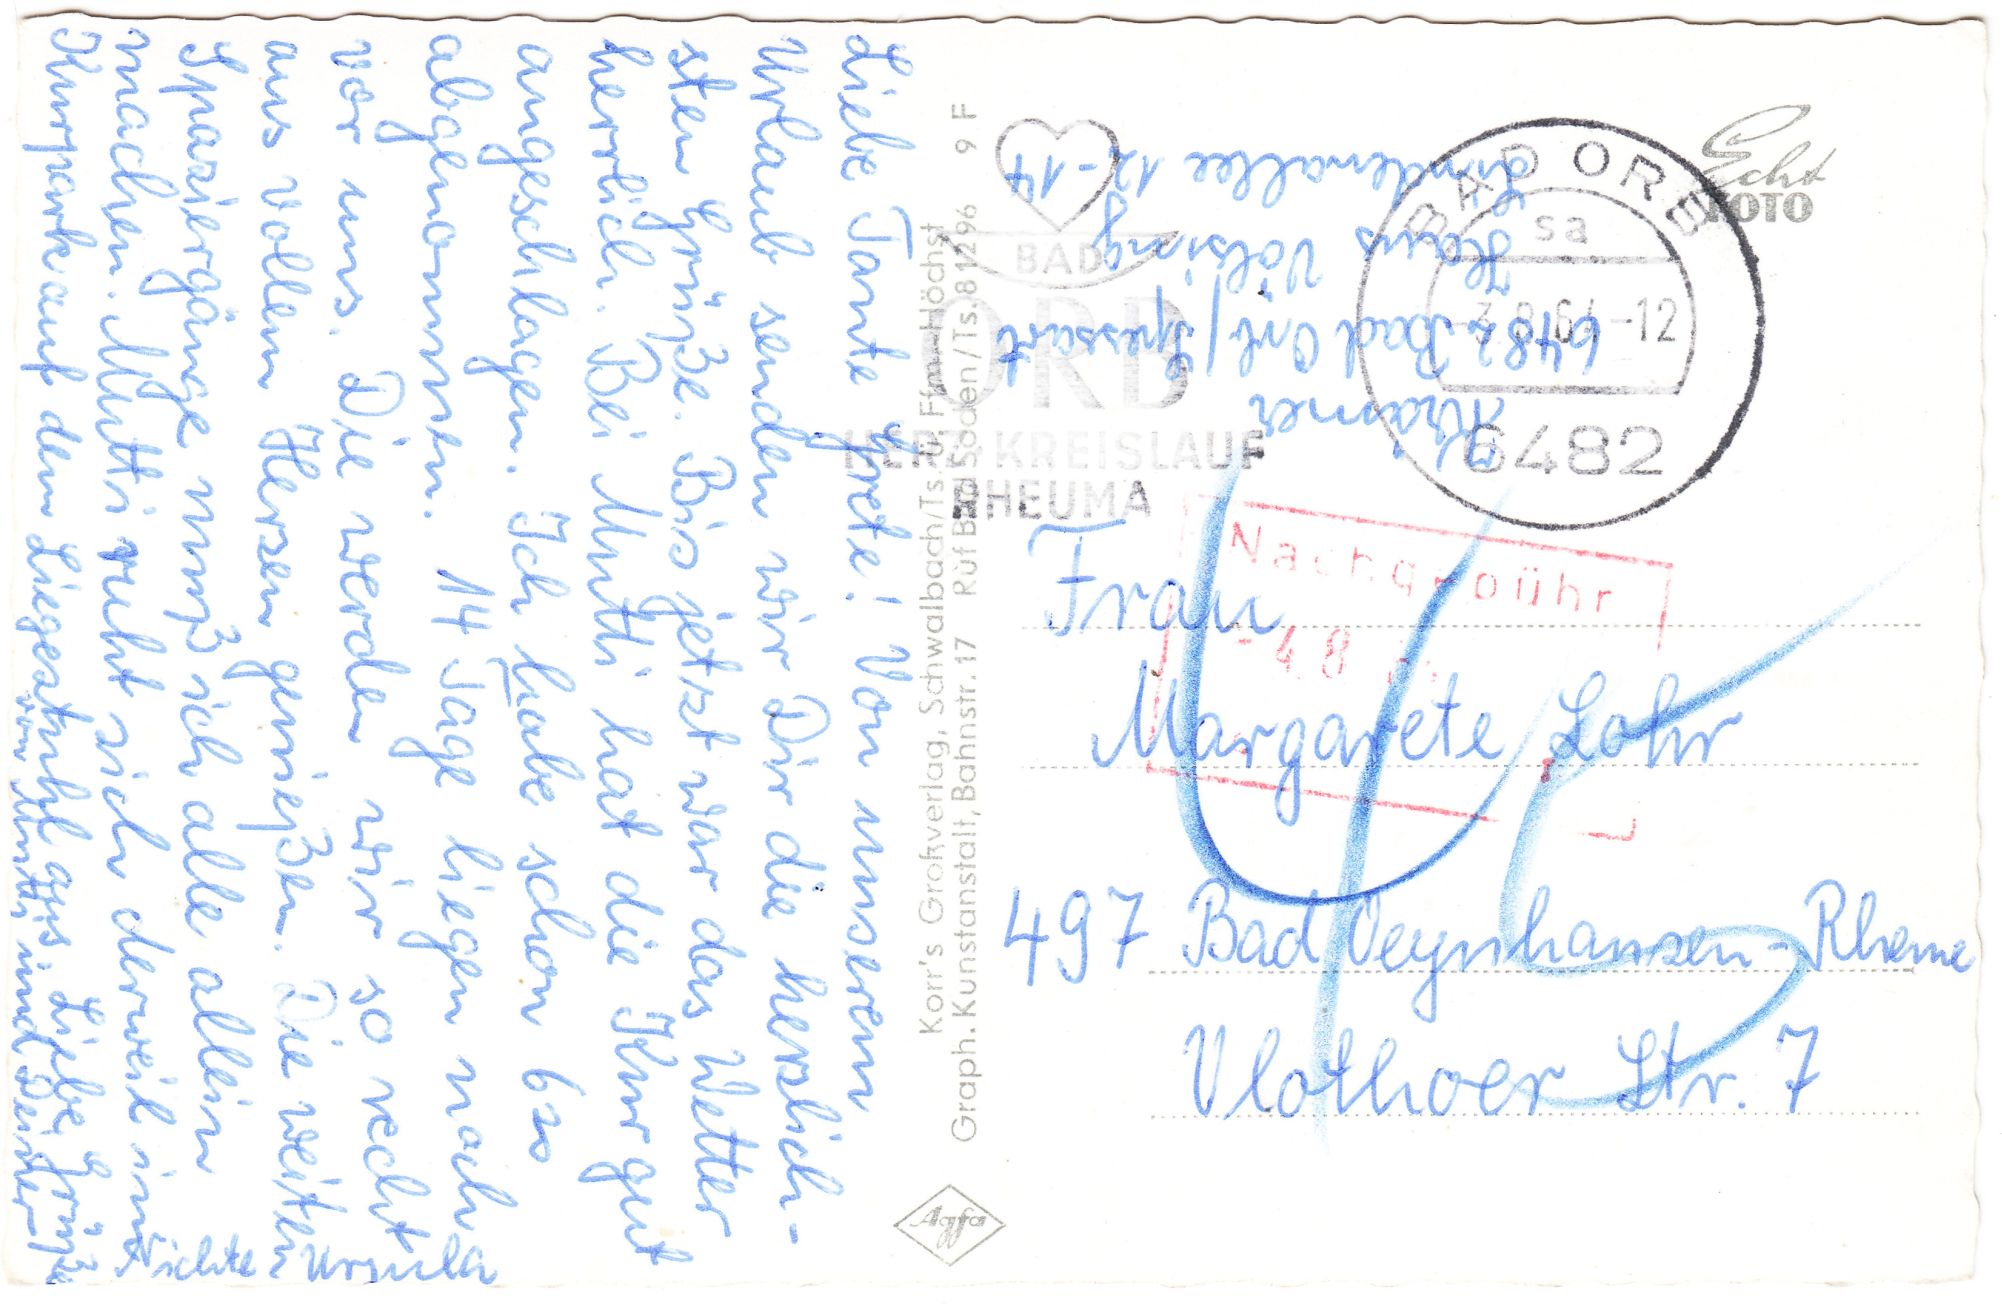 Liebe Tante Grete! Von unserem
Urlaub senden wir Dir die herzlich-
sten Grüße. Bis jetzt war das Wetter
herrlich. Bei Mutti hat die Kur gut
angeschlagen. Ich habe schon 6
abgenommen. 14 Tage liegen noch
vor uns. Die werden wir so recht
aus vollem Herzen genießen. Die weiten
Spaziergänge muß ich alle allein
machen. Mutti ruht sich derweil im
Kurpark auf dem Liegestuhl aus. Liebe Grüße
von Mutti und Deiner
Nichte Ursula
Korr's Großverlag, Schwalbach/Ts. ü. Ffm-Höchst
Graph. Kunstanstalt, Bahnstr. 17 Ruf Bad Soden/Ts. 81296 9 F
Agfa
BAD
ORB
HERZ KREISLAUF
RHEUMA
BAD ORB
sa
-12
6482
Echt
FOTO
Kramer
6482 Bad Orb/Spessart
Haus Völsing
Lindenallee 12-14
Nachgebühr
Frau
Margarete Lohr
497 Bad Oeynhausen-Rheme
Vlothoer Str. 7